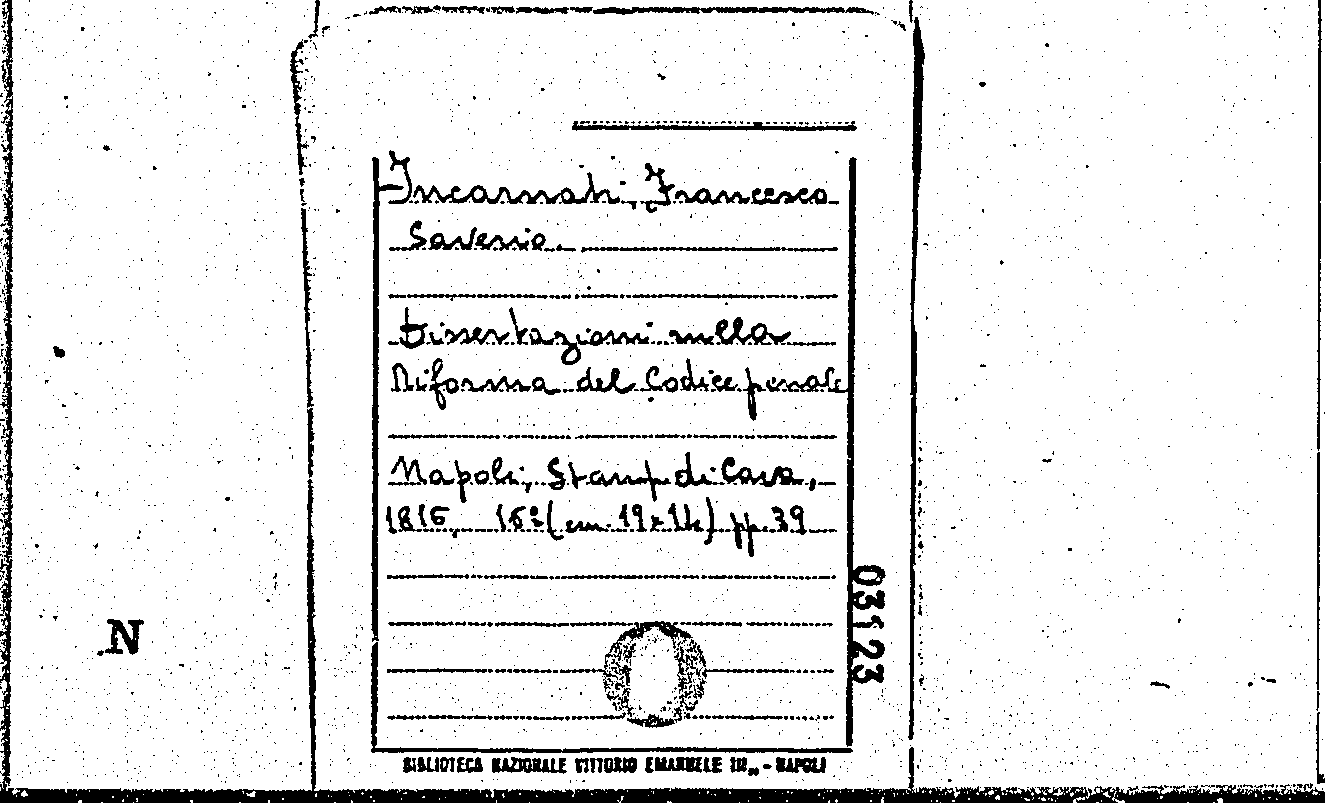 Incarnati, Francesco
Saverio.
Dissertazioni sulla
Riforma del Codice penale
Napoli, Stamp. di Cava,
1816, 16º (cm. 19x14) pp. 39
03123
N
BIBLIOTECA NAZIONALE VITTORIO EMANUELE III„ - NAPOLI